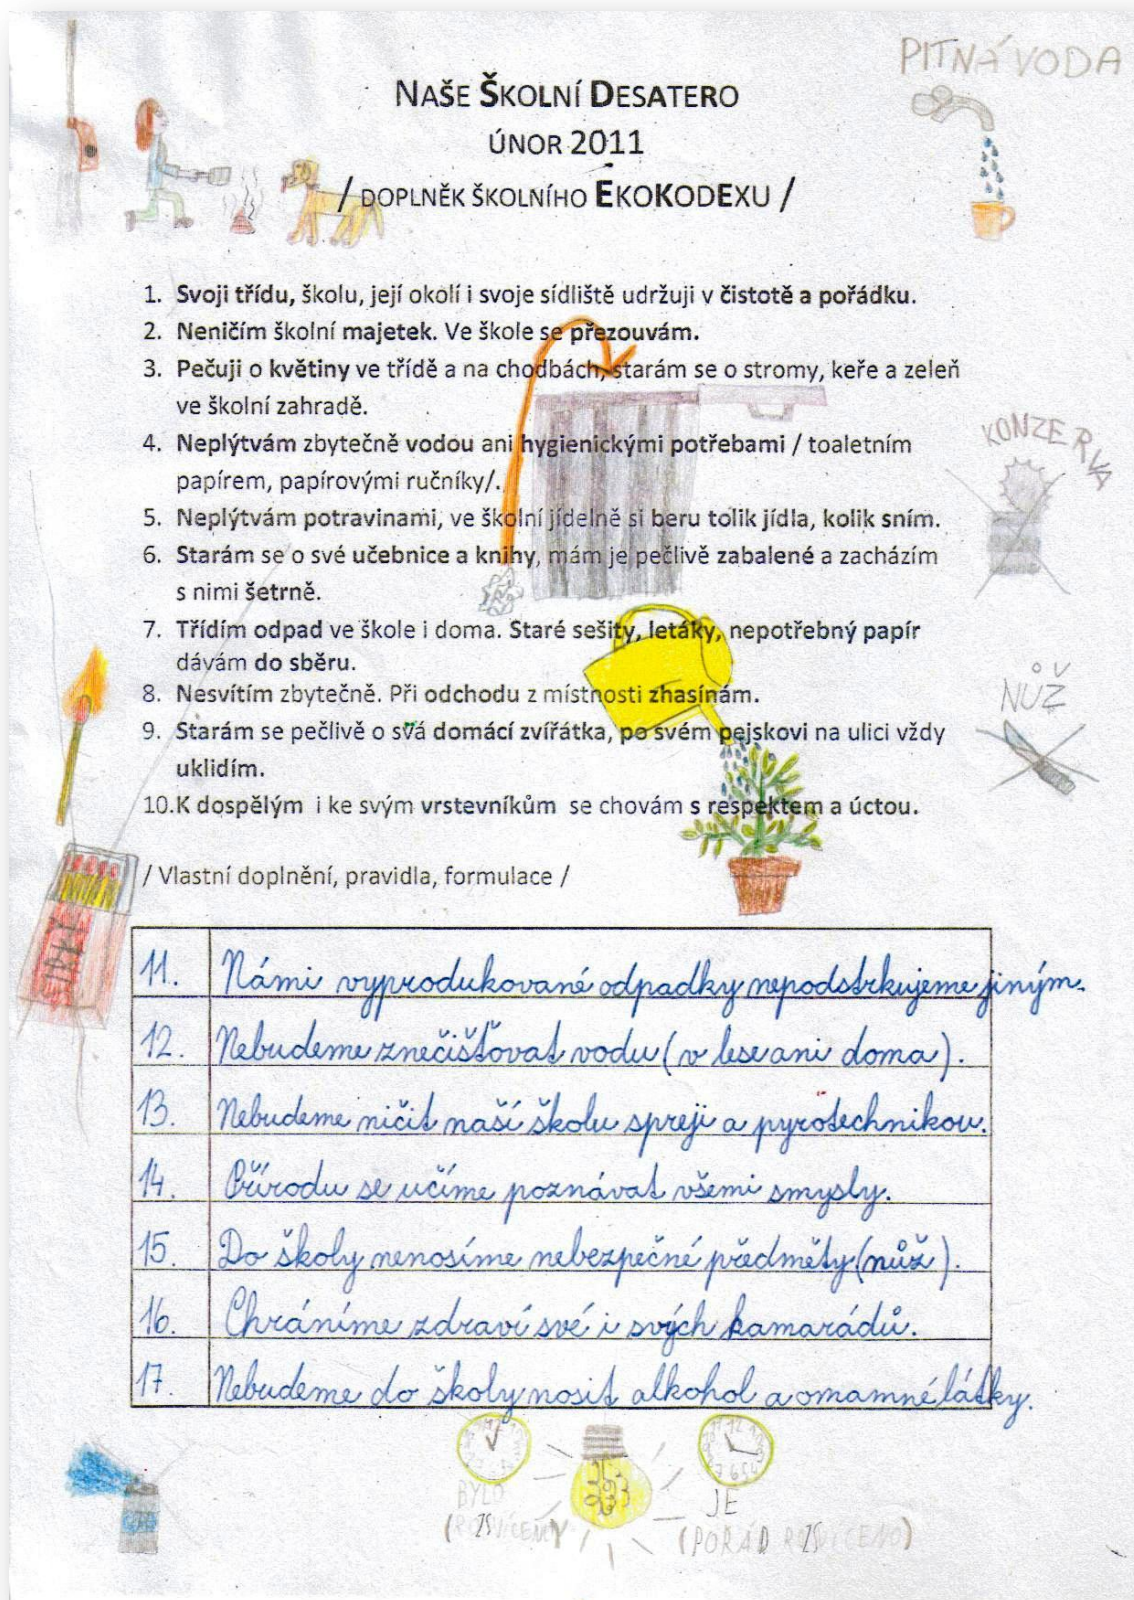 PITNÁ VODA
NAŠE ŠKOLNÍ DESATERO
ÚNOR 2011
/ DOPLNĚK ŠKOLNÍHO EKOKODEXU /
1. Svoji třídu, školu, její okolí i svoje sídliště udržuji v čistotě a pořádku.
2. Neničím školní majetek. Ve škole se přezouvám.
3. Pečuji o květiny ve třídě a na chodbách, starám se o stromy, keře a zeleň
ve školní zahradě.
4. Neplýtvám zbytečně vodou ani hygienickými potřebami / toaletním
papírem, papírovými ručníky/.
KONZERVA
5. Neplýtvám potravinami, ve školní jídelně si beru tolik jídla, kolik sním.
6. Starám se o své učebnice a knihy, mám je pečlivě zabalené a zacházím
s nimi šetrně.
7. Třídím odpad ve škole i doma. Staré sešity, letáky, nepotřebný papír
dávám do sběru.
8. Nesvítím zbytečně. Při odchodu z místnosti zhasínám.
NŮŽ
9. Starám se pečlivě o svá domácí zvířátka, po svém pejskovi na ulici vždy
uklidím.
10.K dospělým i ke svým vrstevníkům se chovám s respektem a úctou.
/ Vlastní doplnění, pravidla, formulace /
11. Námi vyprodukované odpadky nepodstrkujeme jiným.
12. Nebudeme znečišťovat vodu (v lese ani doma).
13. Nebudeme ničit naší školu spreji a pyrotechnikou.
14. Přírodu se učíme poznávat všemi smysly.
15. Do školy nenosíme nebezpečné předměty (nůž).
16. Chráníme zdraví své i svých kamarádů.
17. Nebudeme do školy nosit alkohol a omamné látky.
BYLO
JE
(PORÁD ROZSVÍCENO)